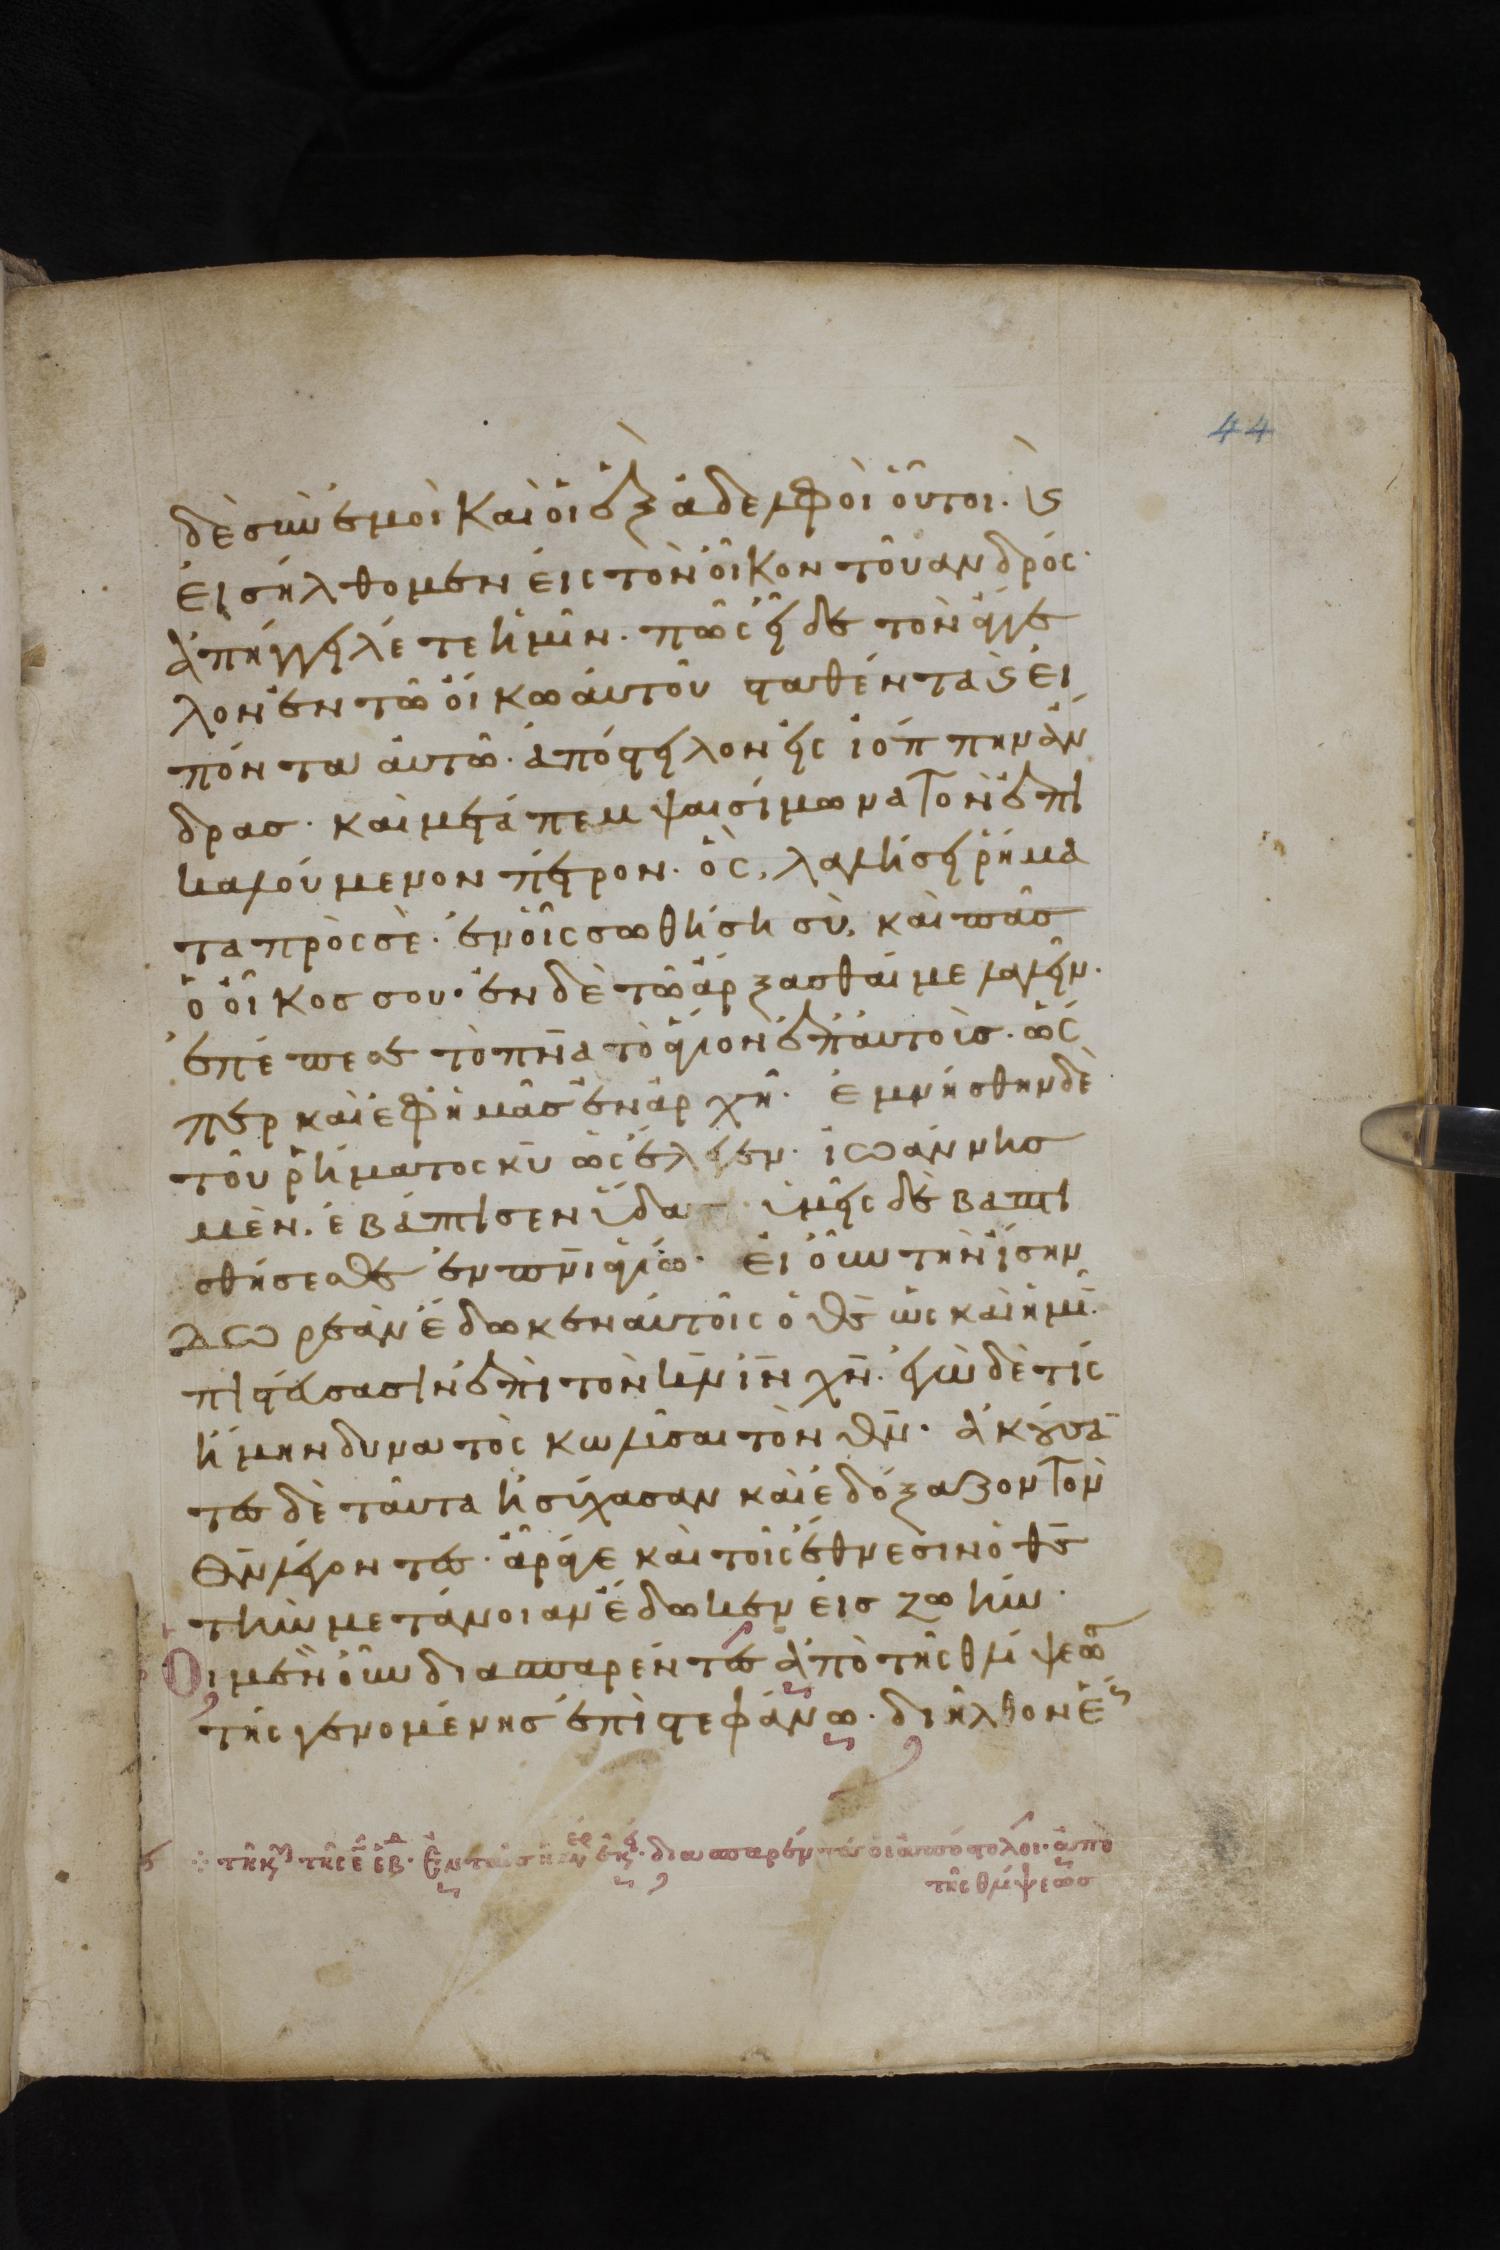 44
δὲ σὺν ἐμοὶ καὶ οἱ ἓξ ἀδελφοὶ οὗτοι. κ(αὶ)
εἰσήλθομεν εἰς τὸν οἶκον τοῦ ἀνδρός·
ἀπήγγειλέ τε ἡμῖν. πῶς εἶδε τὸν ἄγγε
λον ἐν τῶ οἴκω αὐτοῦ σταθέντα κ(αὶ) εἰ
πόντα αὐτῶ· ἀπόστειλον εἰς ἰόππην ἄν
δρας· καὶ μετάπεμψαι σίμωνα τὸν ἐπι
καλούμενον πέτρον· ὃς, λαλήσει ῥήμα
τα πρὸς σὲ· ἐν οἷς σωθήση σὺ, καὶ πᾶς
ὁ οἶκος σου· ἐν δὲ τῶ ἄρξασθαί με λαλεῖν·
ἐπέπεσε τὸ πν̅α τὸ ἅγιον ἐπ' αὐτοὺς· ὥσ
περ καὶ ἐφ' ἡμᾶς ἐν ἀρχῆ· ἐμνήσθην δὲ
τοῦ ῥήματος κ̅υ ὡς ἔλεγεν· ἰωάννης
μὲν. ἐβάπτισεν ὕδατι· ὑμεῖς δὲ βαπτι
σθήσεσθε ἐν πν̅ι ἁγίω· εἰ οὖν τὴν ἴσην
δωρεὰν ἔδωκεν αὐτοῖς ὁ θ̅ς ὡς καὶ ἡμῖ·
πιστεύσασιν ἐπὶ τὸν κ̅ν ι̅ν χ̅ν· ἐγὼ δὲ τίς
ἤμην δυνατὸς κωλῦσαι τὸν θ̅ν· ἀκούσα̅
τες δὲ ταῦτα ἡσύχασαν καὶ ἐδόξαζον τὸν
θ̅ν λέγοντες· ἄραγε καὶ τοῖς ἔθνεσιν ὁ θ̅ς
τὴν μετάνοιαν ἔδωκεν εἰς ζωήν·
Οἱ μὲν οὖν διασπαρέντες ἀπὸ τῆς θλίψεως
τῆς γενομένης ἐπὶ στεφάνω· διῆλθον ἕως
τῆ κυ τῆς ε ἑβδ· Ἐν ταῖς ἡμέρ ἐκ· διασπαρέντες οἱ ἀπόστολοι· ἀπὸ
τῆς θλίψεως